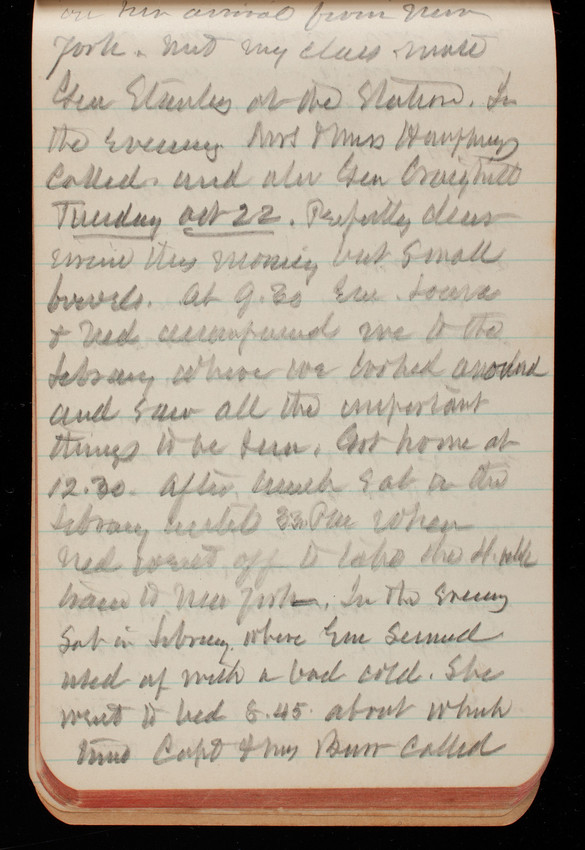 on his arrival from New
York. Met my class mate
Gen Stanley at the Station. In
the evening Mrs & Miss Humphreys
Called. and also Gen Craighill
Tuesday Oct 22. Perfectly clear
this morning but small
bowels. At 9.30 Em
& Ned accompanied me to the
Library where we looked around
and saw all the important
things to be seen. Got home at
12.30. After lunch sat in the
Library until 3 PM when
Ned went off to take the 4. oclk
train to New York. In the evening
Sat in Library. where Em seemed
used up with a bad cold. She
went to bed 8.45. about which
time Capt & Mrs Burr called